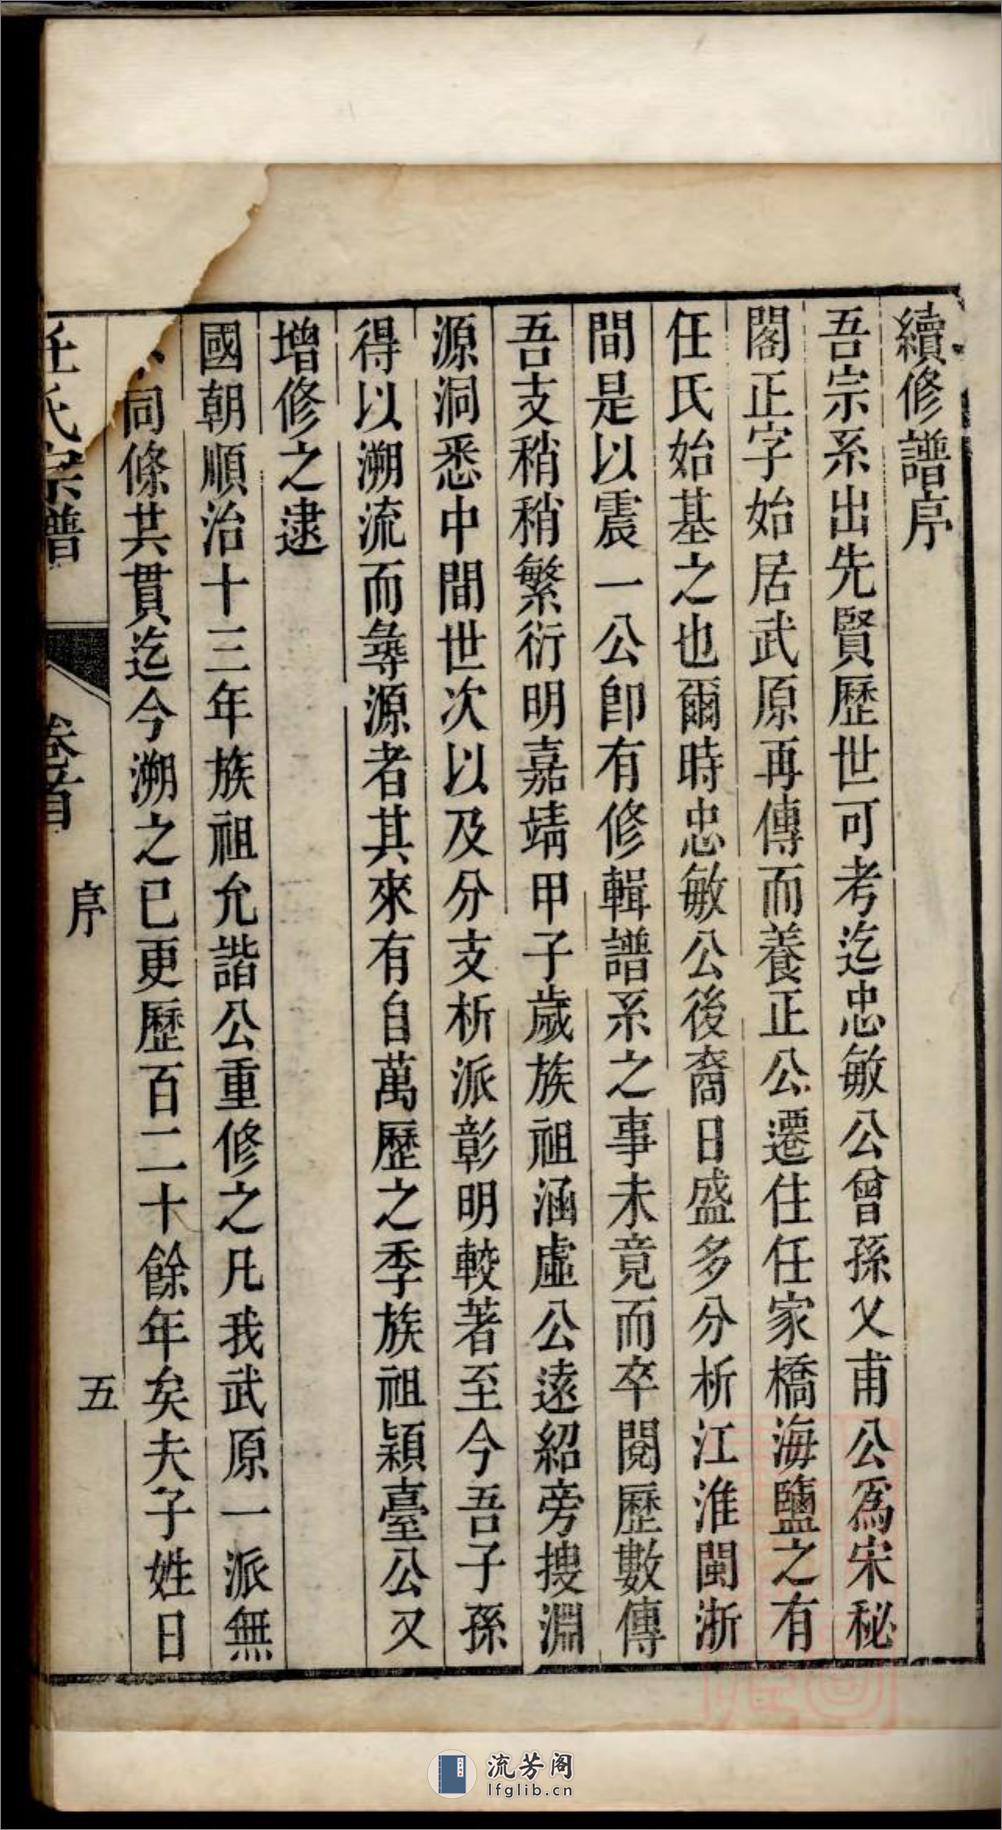 續修譜序
吾宗系出先賢歷世可考迄忠敏公曾孫乂甫公爲宋秘
閣正字始居武原再傳而養正公遷住任家橋海鹽之有
任氏始基之也爾時忠敏公後裔日盛多分析江淮閩浙
間是以震一公卽有修輯譜系之事未竟而卒閱歷數傳
吾支稍稍繁衍明嘉靖甲子歲族祖涵虛公遠紹旁搜淵
源洞悉中間世次以及分支析派彰明較著至今吾子孫
得以溯流而彝源者其來有自萬歷之季族祖穎臺公又
增修之逮
國朝順治十三年族祖允諧公重修之凡我武原一派無
同條其貫迄今溯之已更歷百二十餘年矣夫子姓日
任氏宗譜
卷首
序
五
流芳阁
lfglib.cn